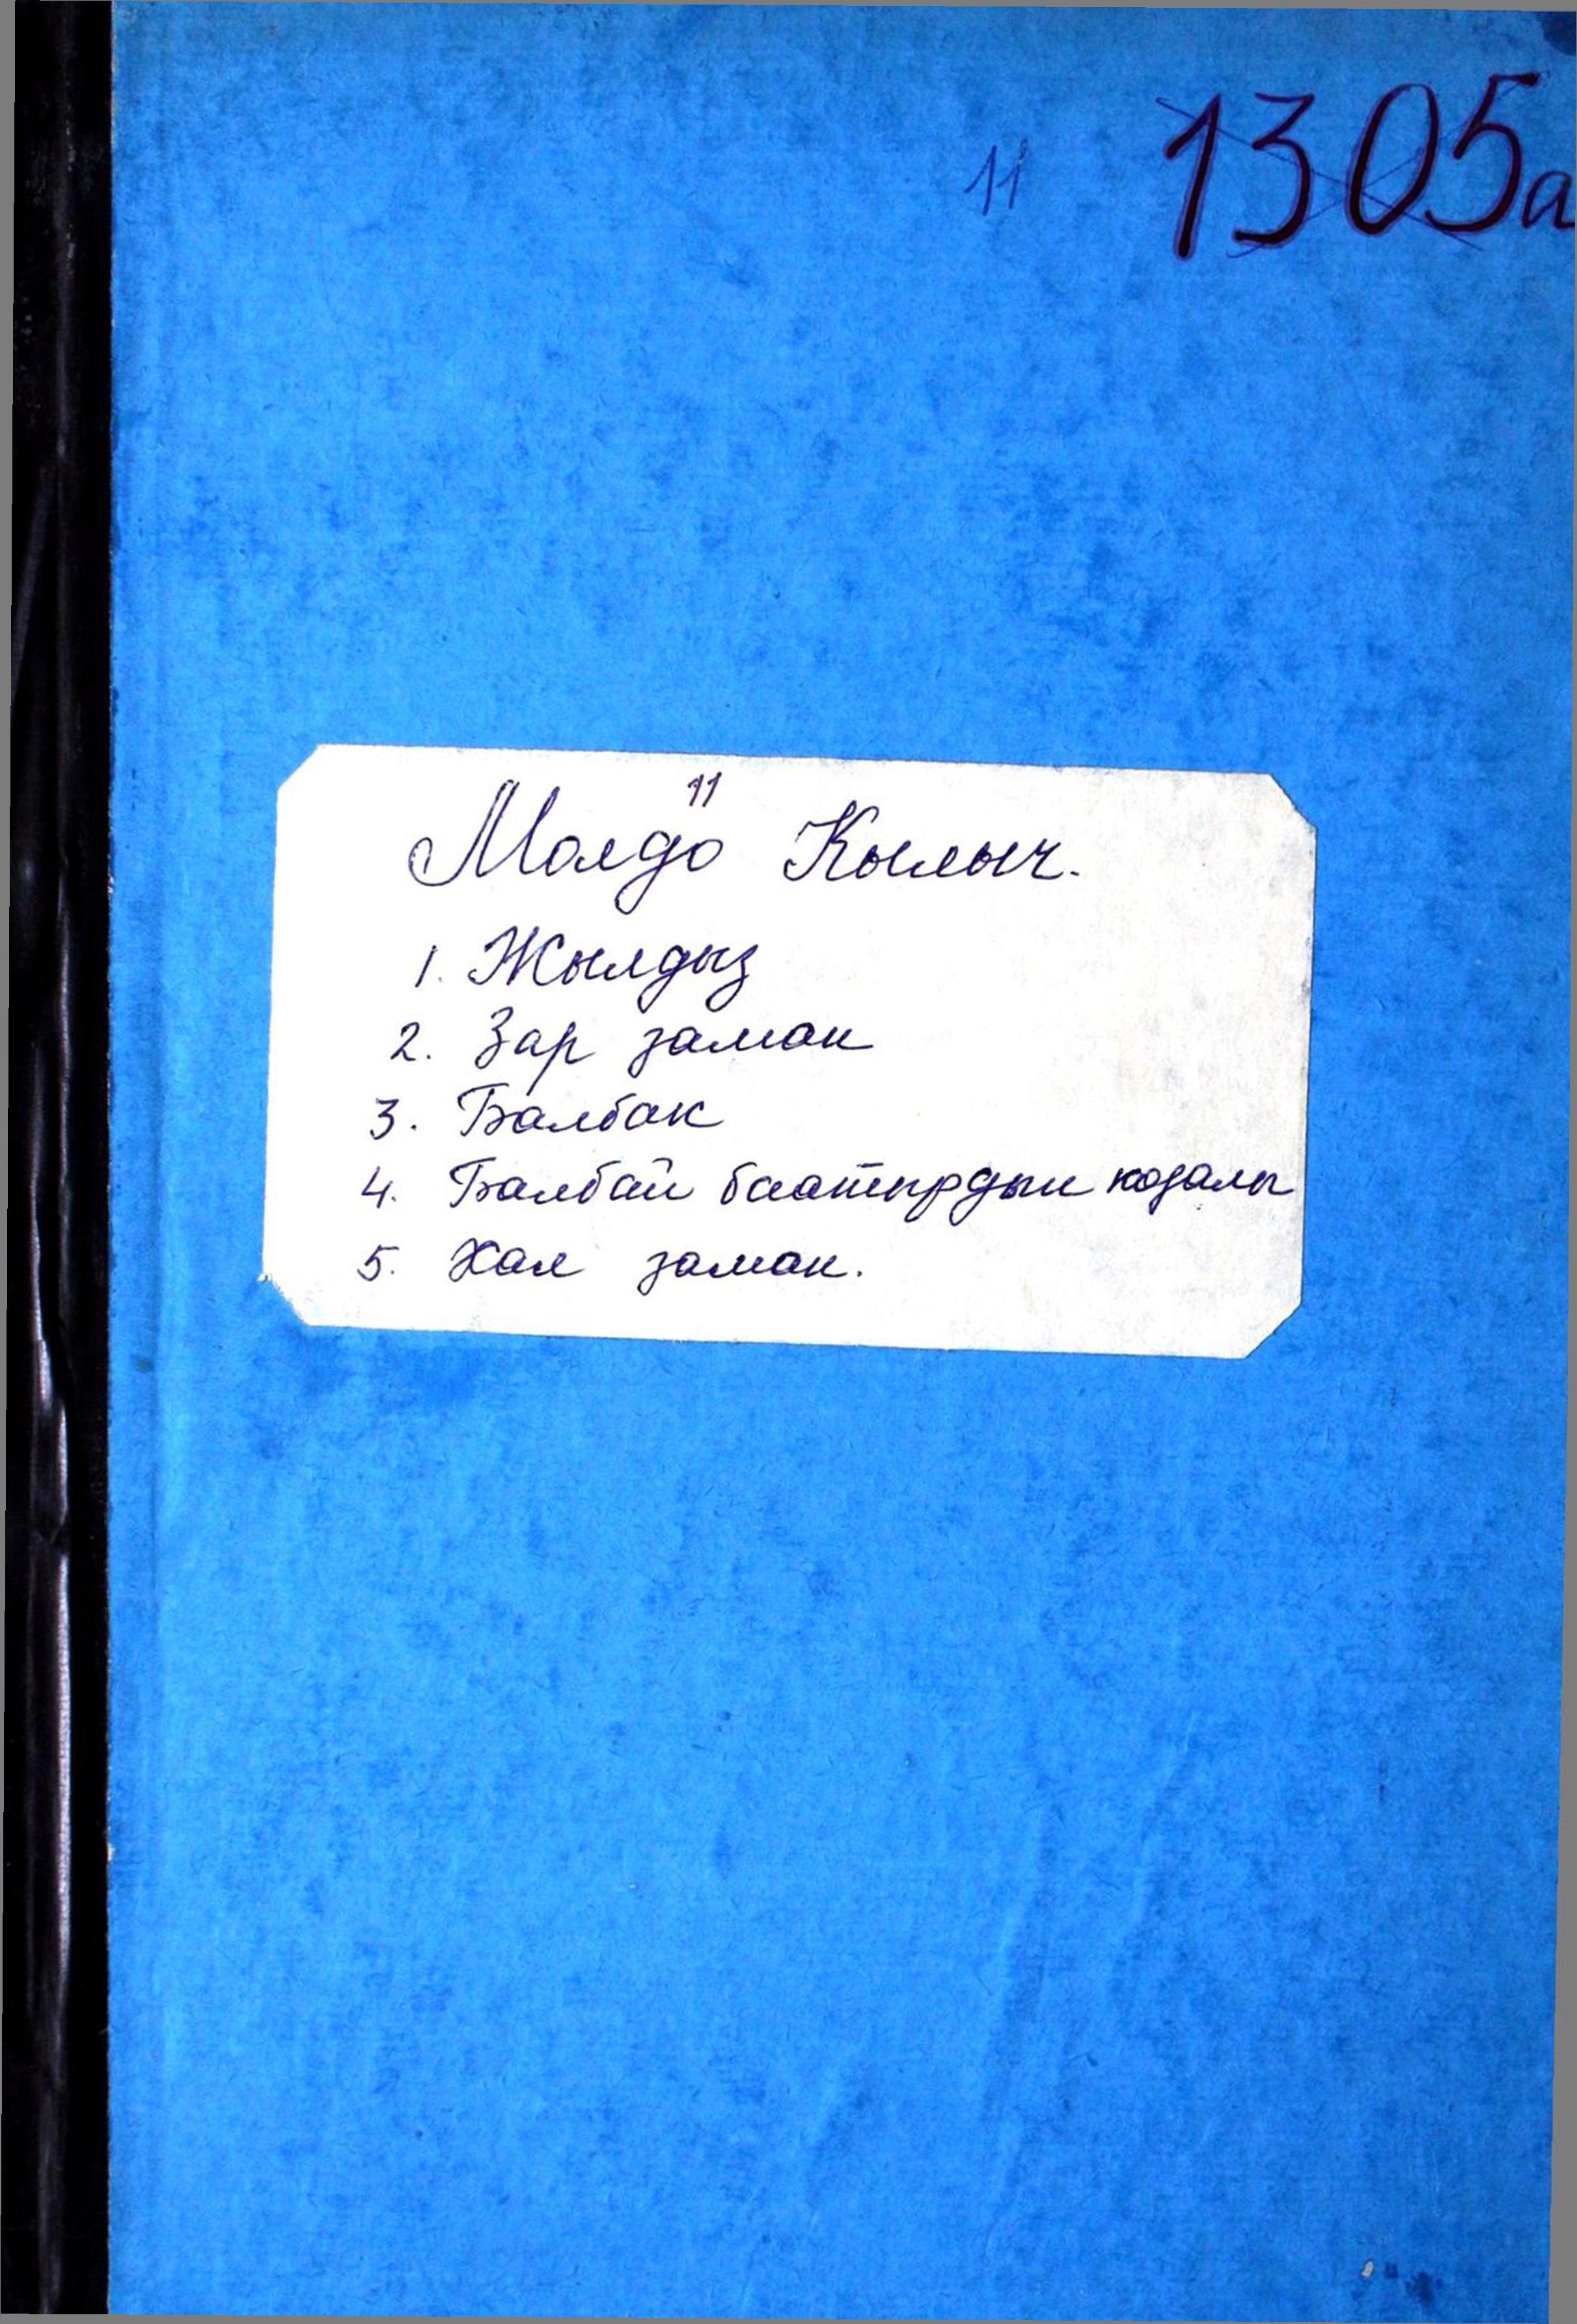 11 1305а
11
Молдо Кылыч.
1. Жылдыз
2. Зар заман
3. Балбак
4. Балбай баатырдын козалы
5. Хал заман.